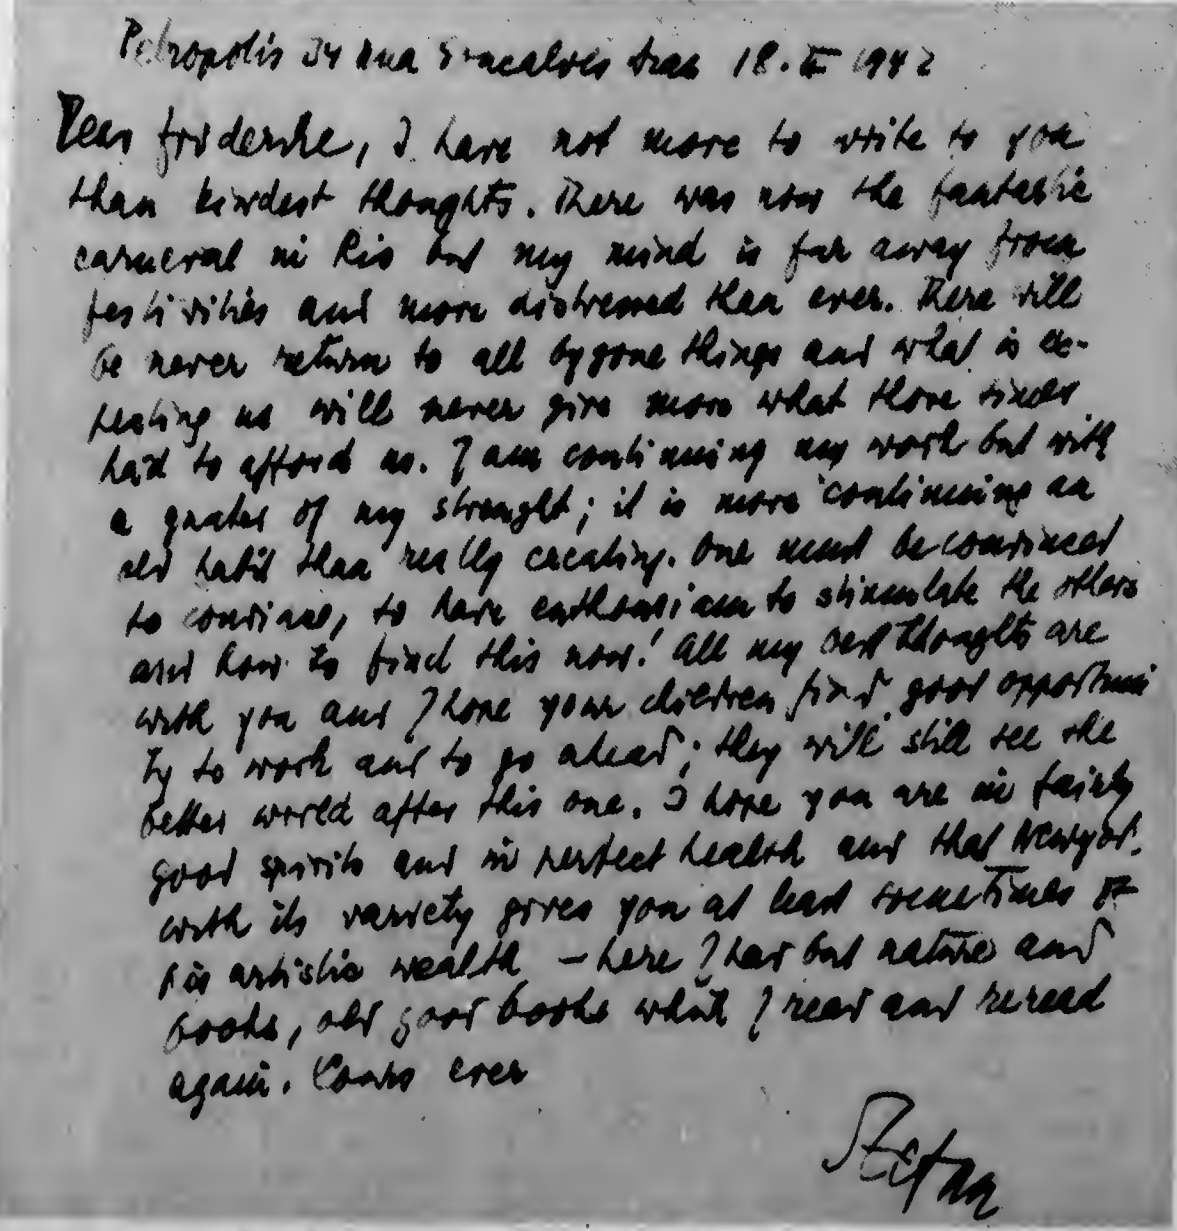 Petropolis 34 Rua Goncalves Dias 18. II 1942
Dear Friderike, I have not more to write to you
than kindest thoughts. There was now the fantastic
carneval in Rio but my mind is far away from
festivities and more distressed than ever. There will
be never return to all bygone things and what is ex-
pecting us will never give more what those times
had to afford us. I am continuing my work but with
a quater of my strenght; it is more continuing an
old habit than really creating. One must be convinced
to convince, to have enthousiasm to stimulate the others
and how to find this now! All my best thoughts are
with you and I hope your children find good opportuni
ty to work and to go ahead; they will still see the
better world after this one. I hope you are in fairly
good spirits and in perfect health and that Newyork
with its variety gives you at least sometimes of
his artistic wealth – here I had but nature and
books, old good books which I read and reread
again. Yours ever
Stefan